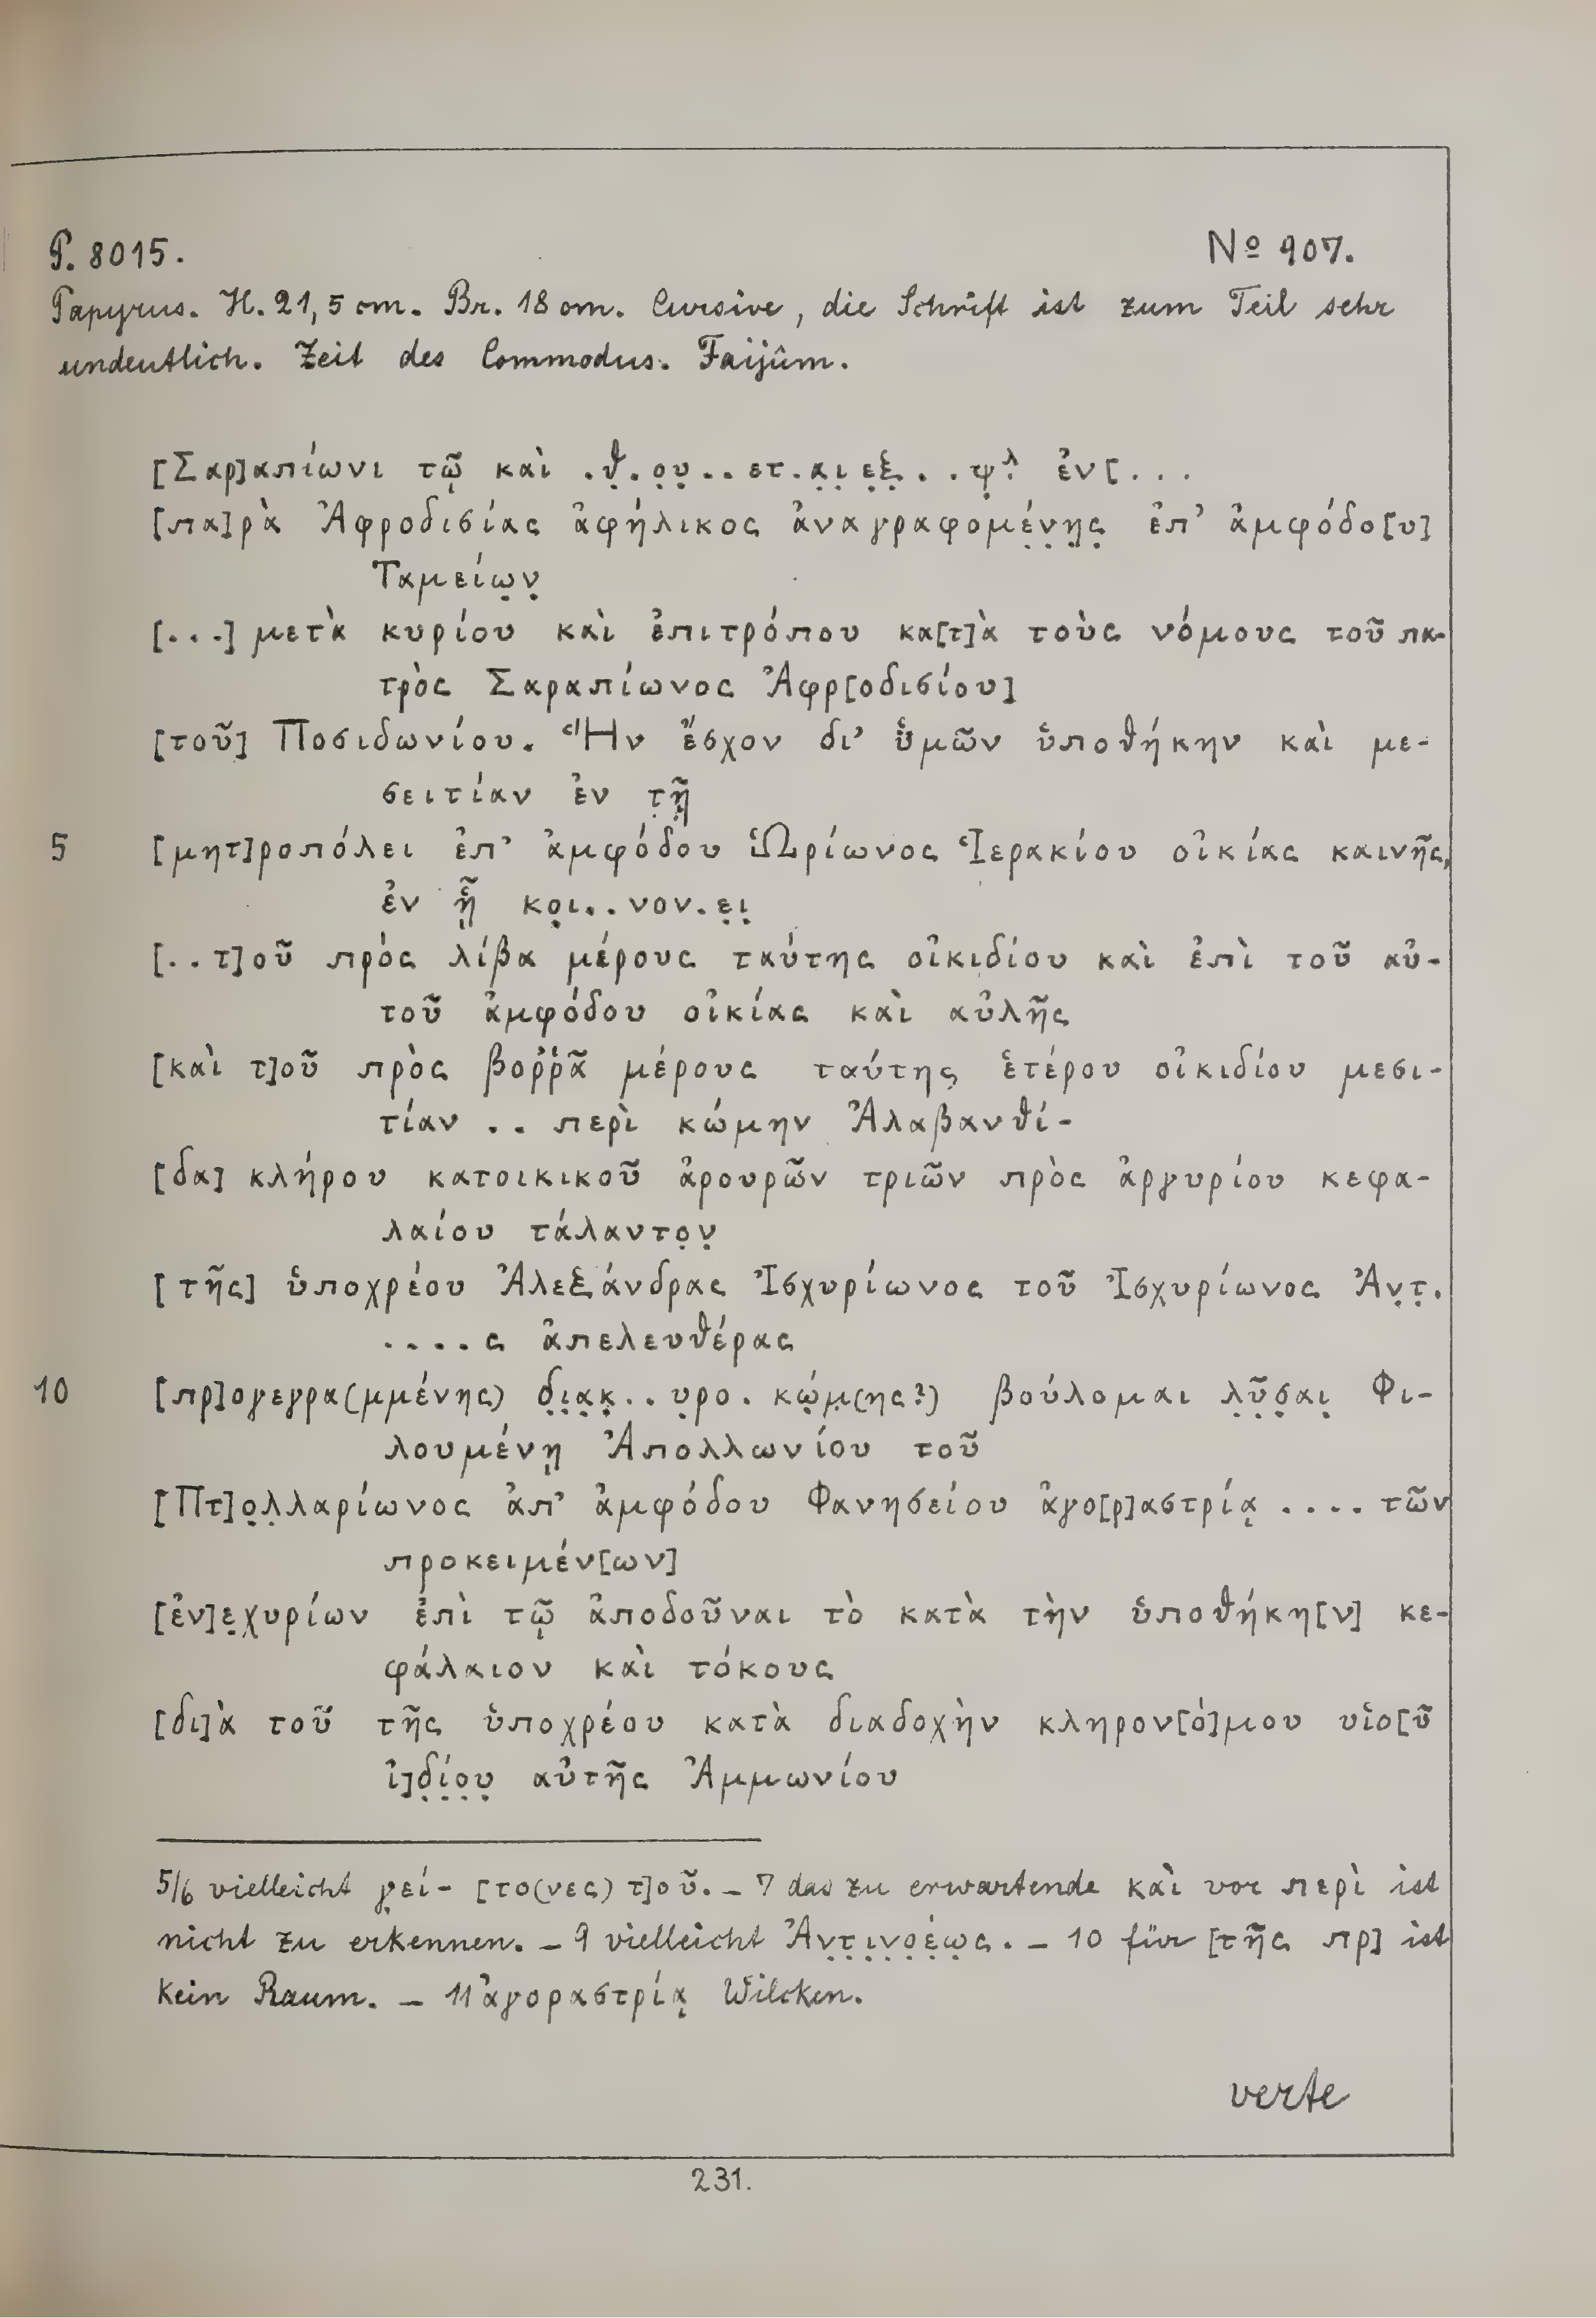 P. 8015. Nº 907.
Papyrus. H. 21,5 cm. Br. 18 cm. Cursive, die Schrift ist zum Teil sehr
undeutlich. Zeit des Commodus. Faijûm.
[Σαρ]απίωνι τῷ καὶ .θ̣.ο̣υ̣..ετ.α̣ι̣ ε̣ξ̣..ψ̣λ. ἐν[...
[πα]ρὰ Ἀφροδισίας ἀφήλικος ἀναγραφομέ̣ν̣η̣ς̣ ἐπ’ ἀμφόδο[υ]
Ταμείω̣ν̣
[...] μετὰ κυρίου καὶ ἐπιτρόπου κα[τ]ὰ τοὺς νόμους τοῦ πα-
τρὸς Σαραπίωνος Ἀφρ[οδισίου]
[τοῦ] Ποσιδωνίου. Ἣν ἔσχον δι’ ὑμῶν ὑποθήκην καὶ με-
σειτίαν ἐν τ̣ῇ̣
5 [μητ]ροπόλει ἐπ’ ἀμφόδου Ὡρίωνος Ἱερακίου οἰκίας καινῆς,
ἐν ᾗ κο̣ι..νον.ε̣ι̣
[..τ]οῦ πρὸς λίβα μέρους ταύτης οἰκιδίου καὶ ἐπὶ τοῦ αὐ-
τοῦ ἀμφόδου οἰκίας καὶ αὐλῆς
[καὶ τ]οῦ πρὸς βοῤῥᾶ μέρους ταύτης ἑτέρου οἰκιδίου μεσι-
τίαν .. περὶ κώμην Ἀλαβανθί-
[δα] κλήρου κατοικικοῦ ἀρουρῶν τριῶν πρὸς ἀργυρίου κεφα-
λαίου τάλαντο̣ν̣
[τῆς] ὑποχρέου Ἀλεξάνδρας Ἰσχυρίωνος τοῦ Ἰσχυρίωνος Ἀν̣τ̣.
....ς ἀπελευθέρας
10 [πρ]ογεγρα(μμένης) δ̣ι̣α̣κ̣..υ̣ρο. κώ̣μ̣(ης?) βούλομαι λ̣ῦ̣σ̣αι̣ Φι-
λουμένῃ Ἀπολλωνίου τοῦ
[Πτ]ο̣λ̣λαρίωνος ἀπ’ ἀμφόδου Φανησείου ἀγο[ρ]αστρίᾳ .... τῶν
προκειμέν[ων]
[ἐν]ε̣χυρίων ἐπὶ τῷ ἀποδοῦναι τὸ κατὰ τὴν ὑποθήκη[ν] κε-
φάλαιον καὶ τόκους
[δι]ὰ τοῦ τῆς ὑποχρέου κατὰ διαδοχὴν κληρον[ό]μου υἱο[ῦ
ἰ]δ̣ί̣ο̣υ̣ αὐτῆς Ἀμμωνίου
5/6 vielleicht γ̣εί- [το(νες) τ]οῦ. – 7 das zu erwartende καὶ vor περὶ ist
nicht zu erkennen. – 9 vielleicht Ἀν̣τ̣ι̣ν̣ο̣έ̣ω̣ς. – 10 für [τῆς πρ] ist
kein Raum. – 11 ἀγοραστρίᾳ Wilcken.
verte
231.